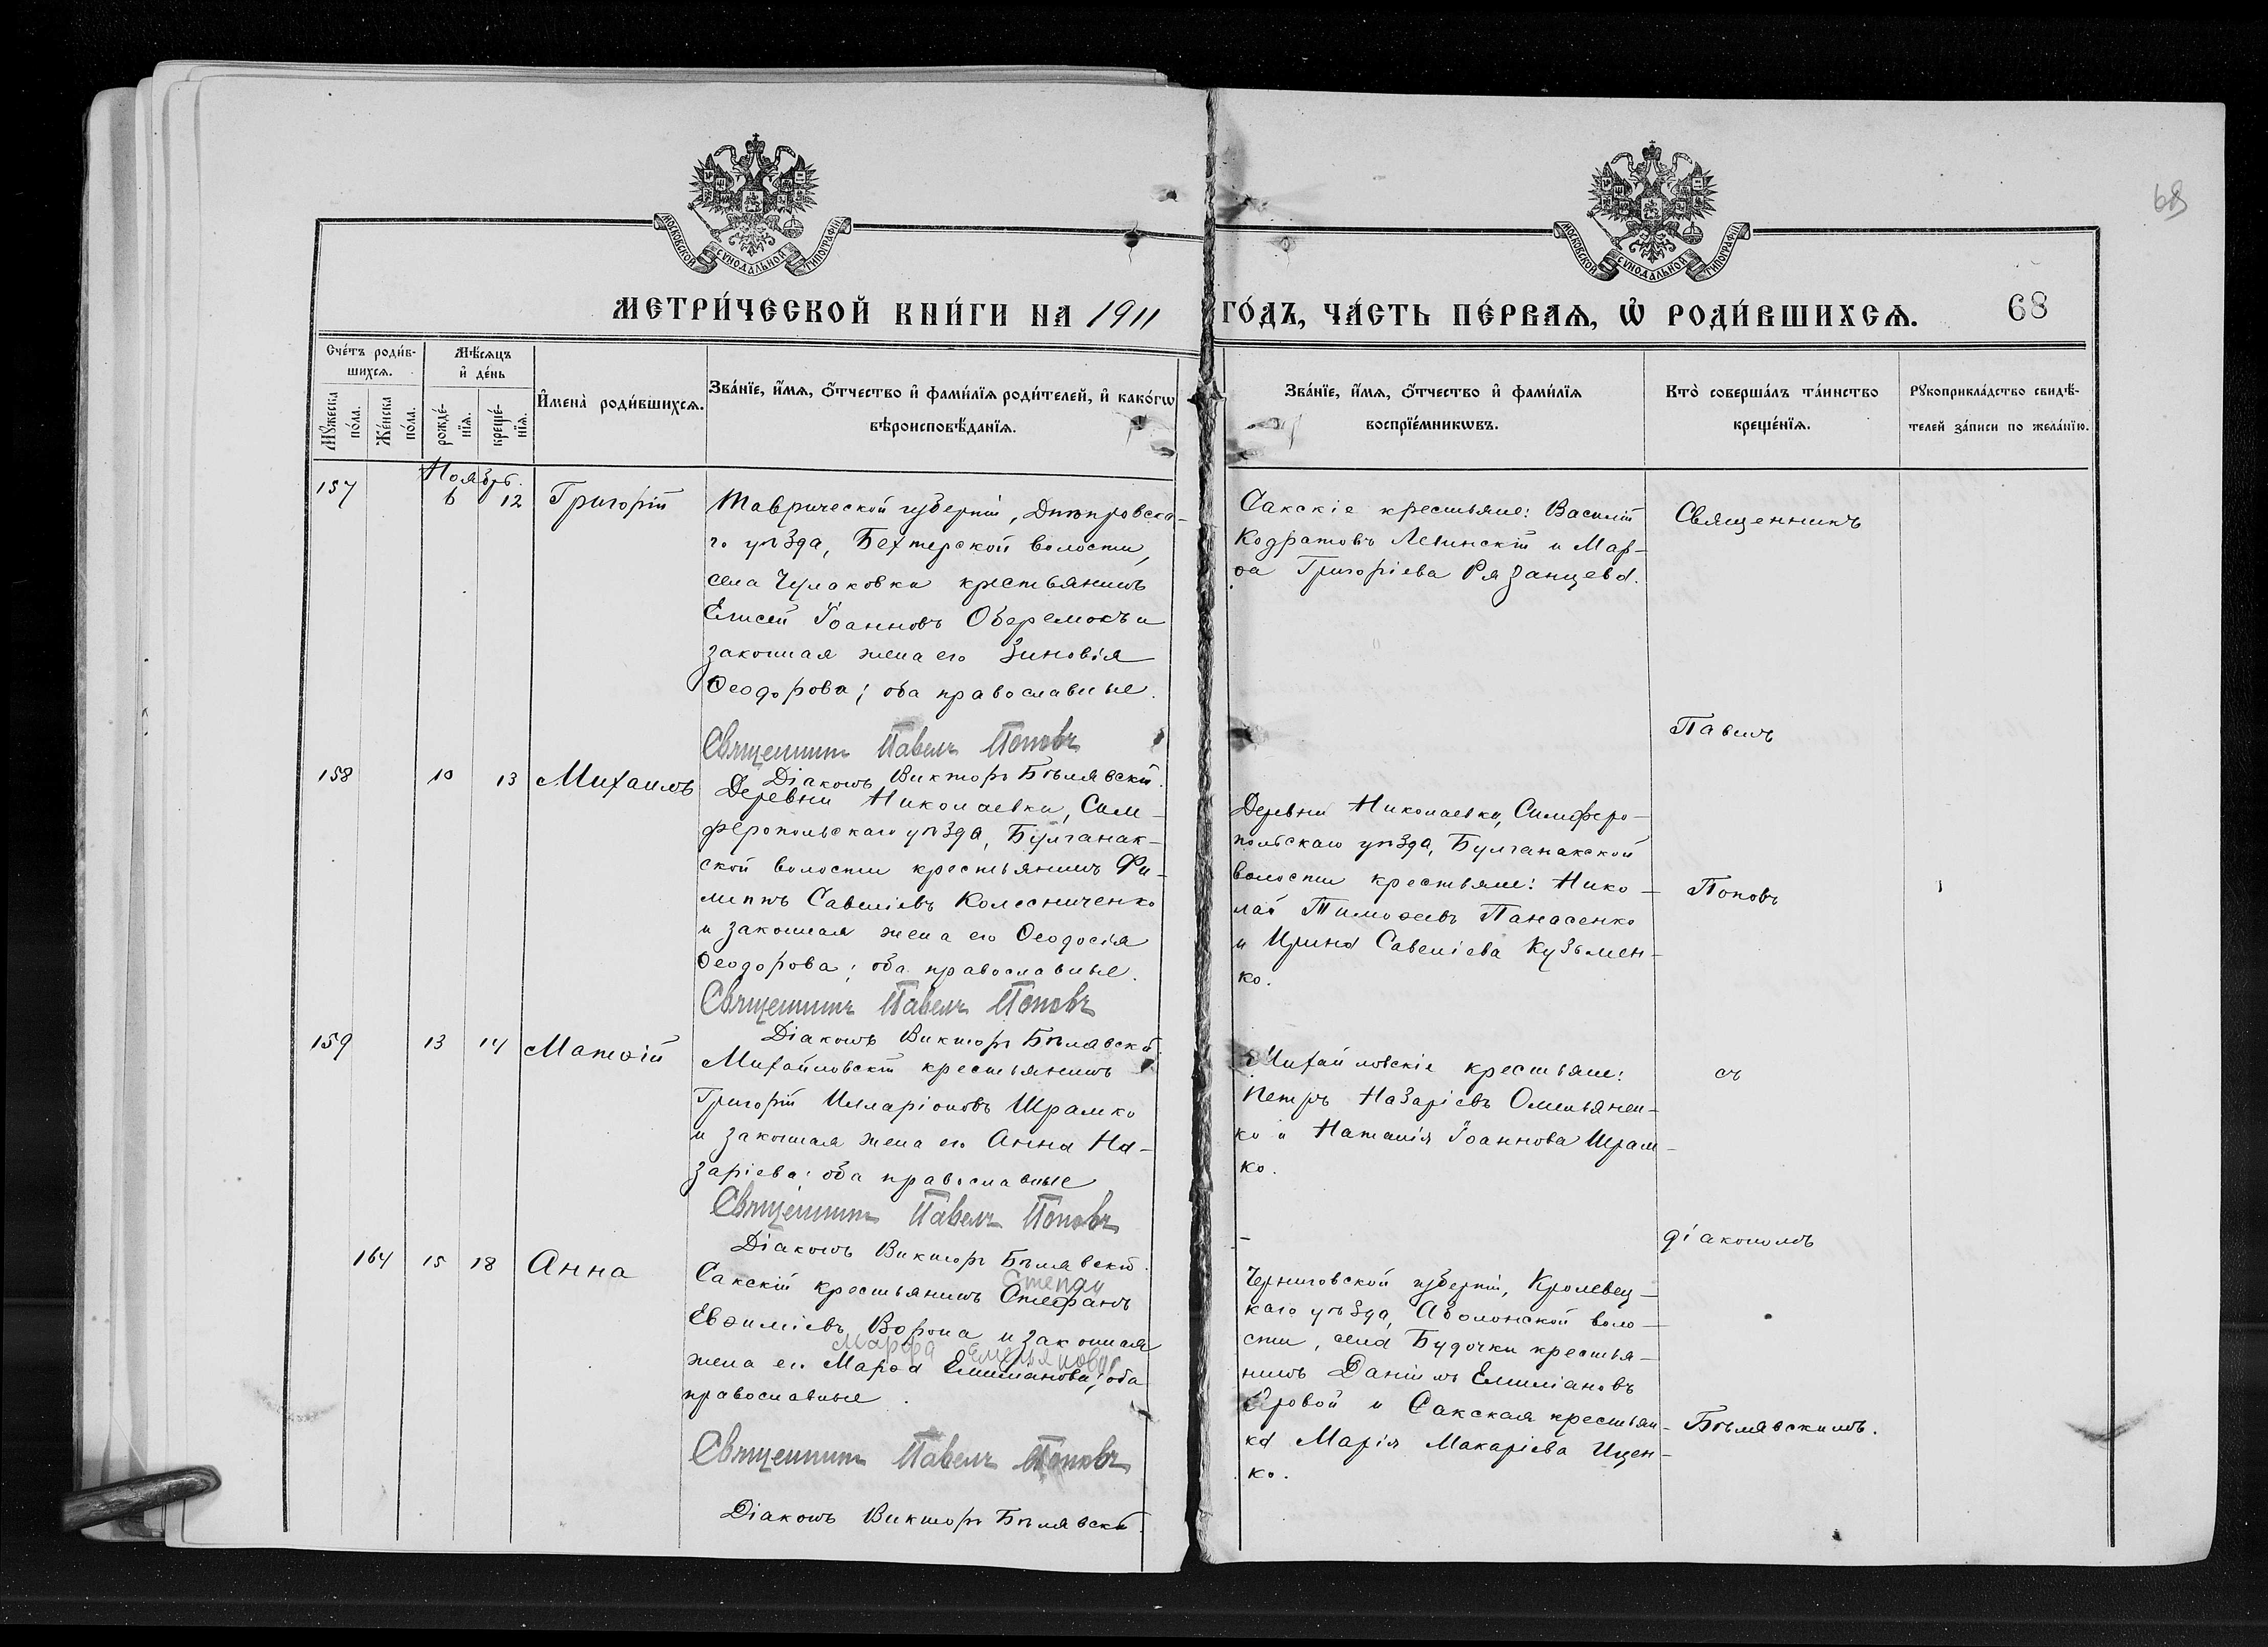 68
МОСКОВСКОЙ СУНОДАЛЬНОЙ ТИПОГРАФІИ
МОСКОВСКОЙ СУНОДАЛЬНОЙ ТИПОГРАФІИ
МЕТРИ́ЧЕСКОЙ КНИ́ГИ НА 1911 ГО́ДЪ, ЧА́СТЬ ПЕ́РВАѦ, Ѡ҆ РОДИ́ВШИХСѦ. 68
Сче́тъ роди́в-
шихсѧ.
Мꙋ́жеска по́ла.
Же́нска по́ла.
Мѣ́сѧцъ
и҆ де́нь
рожде́-
нїѧ.
креще́-
нїѧ.
И҆мена̀ роди́вшихсѧ.
Зва́нїе, и҆́мѧ, ѻ҆́тчество и҆ фами́лїѧ роди́телей, и҆ како́гѡ
вѣроисповѣ́данїѧ.
Зва́нїе, и҆́мѧ, ѻ҆́тчество и҆ фами́лїѧ
воспрїе́мникѡвъ.
Кто̀ соверша́лъ та́инство
креще́нїѧ.
Рꙋкоприкла́дство свидѣ́-
телей за́писи по жела́нїю.
Ноябрь.
157 6 12 Григорій
Таврической губерніи, Днѣпровска-
го уѣзда, Бехтерской волости,
села Чулаковки крестьянинъ
Елисей Іоанновъ Оберемокъ и
законная жена его Зиновія
Ѳеодорова; оба православные.
Священникъ Павелъ Поповъ
Діаконъ Викторъ Бѣлявскій.
Сакскіе крестьяне: Василій
Кодратовъ Левинскій и Мар-
ѳа Григоріева Рязанцева.
Священникъ
Павелъ
158 10 13 Михаилъ
Деревни Николаевки, Сим-
феропольскаго уѣзда, Булганак-
ской волости крестьянинъ Фи-
липпъ Савеліевъ Колесниченко
и законная жена его Ѳеодосія
Ѳеодорова; оба православные.
Священникъ Павелъ Поповъ
Діаконъ Викторъ Бѣлявскій.
Деревни Николаевки, Симферо-
польскаго уѣзда, Булганакской
волости крестьяне: Нико-
лай Тимоѳеевъ Панасенко
и Ирина Савеліева Кузьмен-
ко.
Поповъ
159 13 14 Матѳій
Михайловскій крестьянинъ
Григорій Илларіоновъ Шрамко
и законная жена его Анна На-
заріева; оба православные
Священникъ Павелъ Поповъ
Діаконъ Викторъ Бѣлявскій.
Михайловскіе крестьяне:
Петръ Назаріевъ Омельянен-
ко и Наталія Іоаннова Шрам-
ко.
съ
діакономъ
164 15 18 Анна
Степан
Сакскій крестьянинъ Стефанъ
Евѳиміевъ Ворона и законная
Марфа Емельянова
жена его Марѳа Емиліанова; оба
православные.
Священникъ Павелъ Поповъ
Діаконъ Викторъ Бѣлявскій.
Черниговской губерніи, Кролевец-
каго уѣзда, Аболонской воло-
сти, села Будочки крестья-
нинъ Даніилъ Емиліановъ
и Сакская крестьян-
ка Марія Макаріева Ищен-
ко.
Бѣлявскимъ.